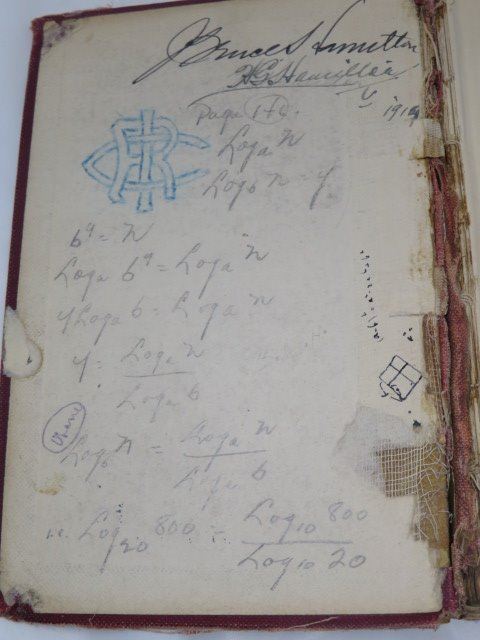 J Bruce S Hamilton
H G Hamilton
V 1919
Page
Loga n
Logb n = y
b^y = n
Loga b^y = Loga n
y Loga b = Loga n
y = Loga n
Loga b
Logb n = Loga n
Loga b
i.e. Log20 800 = Log10 800
Log10 20